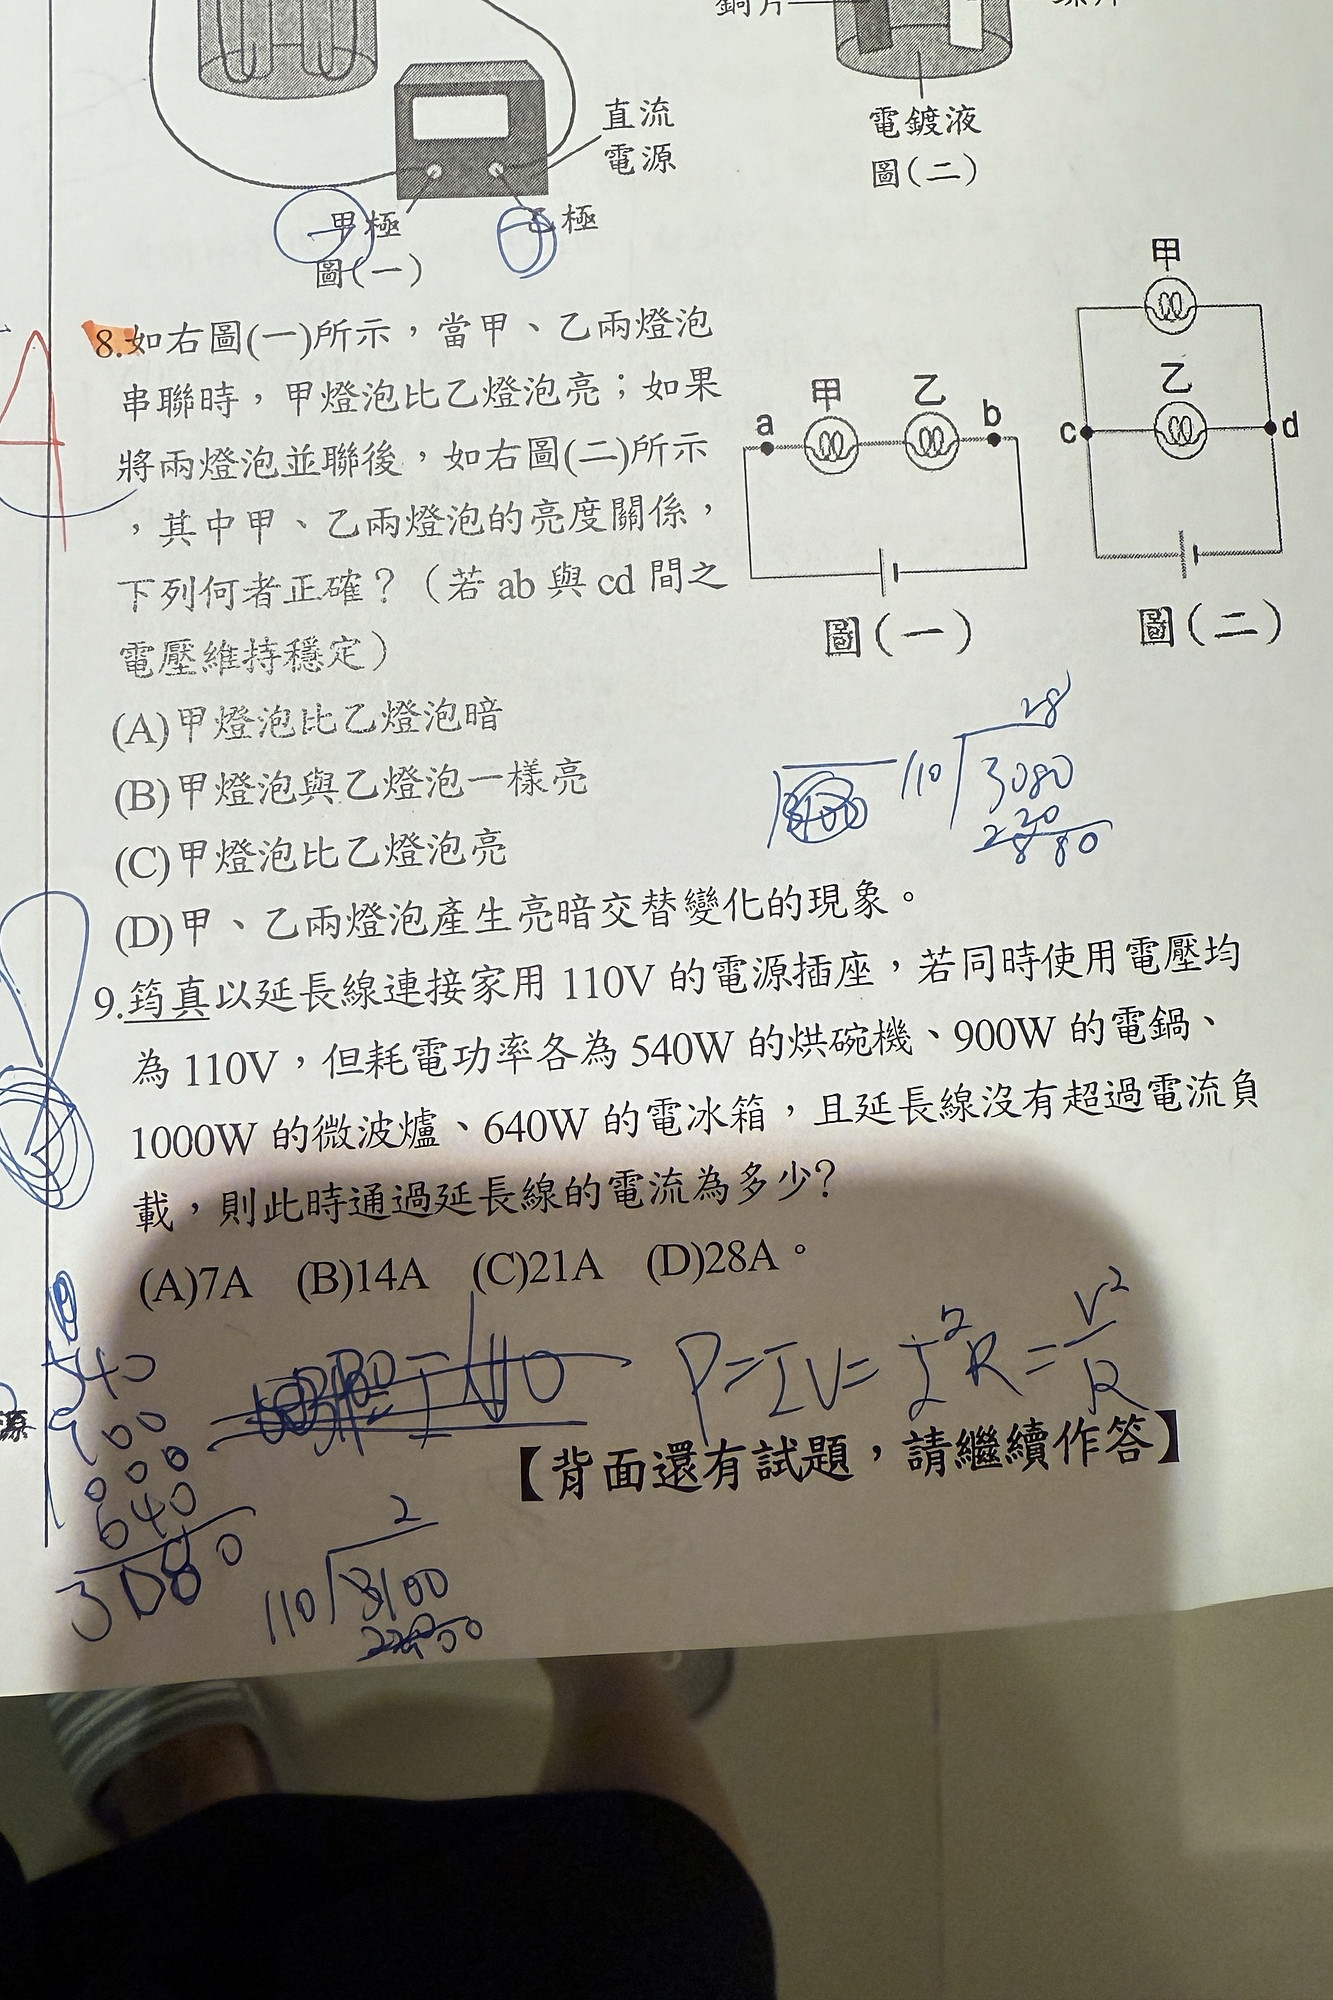 銅片
電鍍液
圖(二)
直流
電源
甲極
乙極
圖(一)
8.如右圖(一)所示，當甲、乙兩燈泡
串聯時，甲燈泡比乙燈泡亮；如果
將兩燈泡並聯後，如右圖(二)所示
，其中甲、乙兩燈泡的亮度關係，
下列何者正確？（若 ab 與 cd 間之
電壓維持穩定）
甲 乙
a b
圖(一)
甲
乙
c d
圖(二)
(A)甲燈泡比乙燈泡暗
(B)甲燈泡與乙燈泡一樣亮
(C)甲燈泡比乙燈泡亮
(D)甲、乙兩燈泡產生亮暗交替變化的現象。
28
110 3080
220
880
9.筠真以延長線連接家用 110V 的電源插座，若同時使用電壓均
為 110V，但耗電功率各為 540W 的烘碗機、900W 的電鍋、
1000W 的微波爐、640W 的電冰箱，且延長線沒有超過電流負
載，則此時通過延長線的電流為多少？
(A)7A (B)14A (C)21A (D)28A。
P=IV=I²R=V²/R
【背面還有試題，請繼續作答】
源
540
900
1000
640
3080
2
110 3100